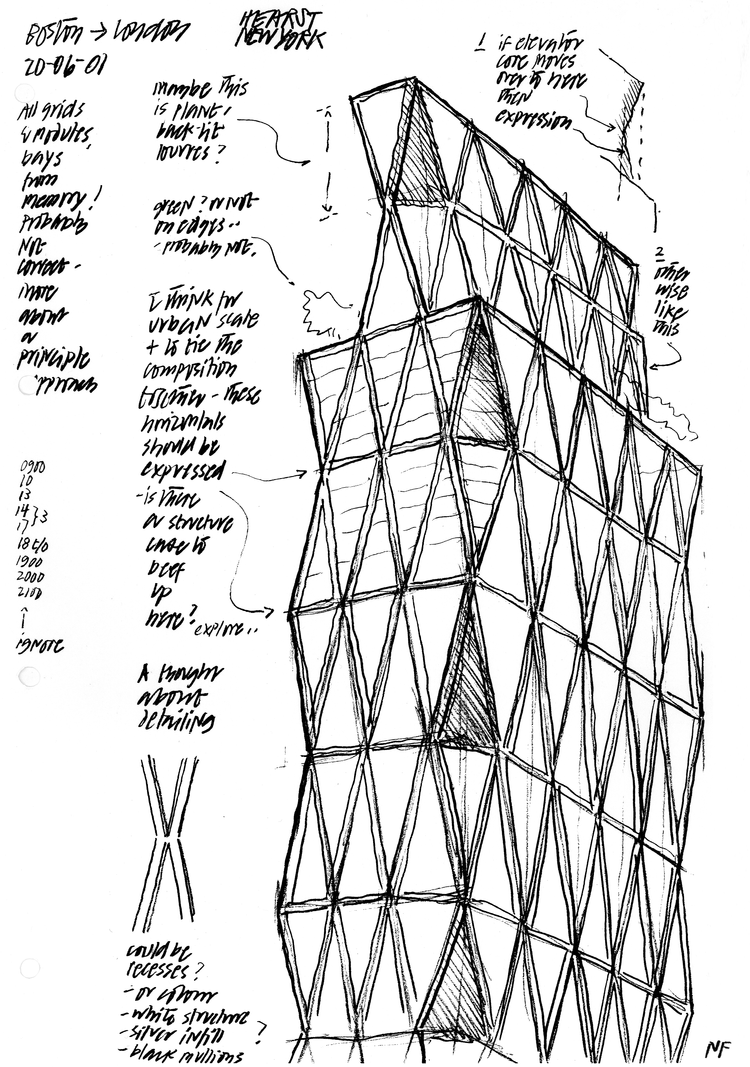 BOSTON → LONDON
20-06-01
HEARST
NEW YORK
All grids
& modules,
bays
from
memory!
Probably
NOT
correct -
more
about
a
principle
approach
0900
10
13
14 } 3
17
18 t/o
1900
2000
2100
↑
ignore
maybe this
is plant,
back-lit
louvres?
green? or not
on edges..
- probably not.
I think for
urban scale
+ to tie the
composition
together - these
horizontals
should be
expressed
- is there
a structure
case to
beef
up
here?
explore..
A thought
about
detailing
could be
recesses?
- or colour
- white structure
- silver infill ?
- black mullions
1 if elevator
core moves
over to here
then
expression
2
other
wise
like
this
NF